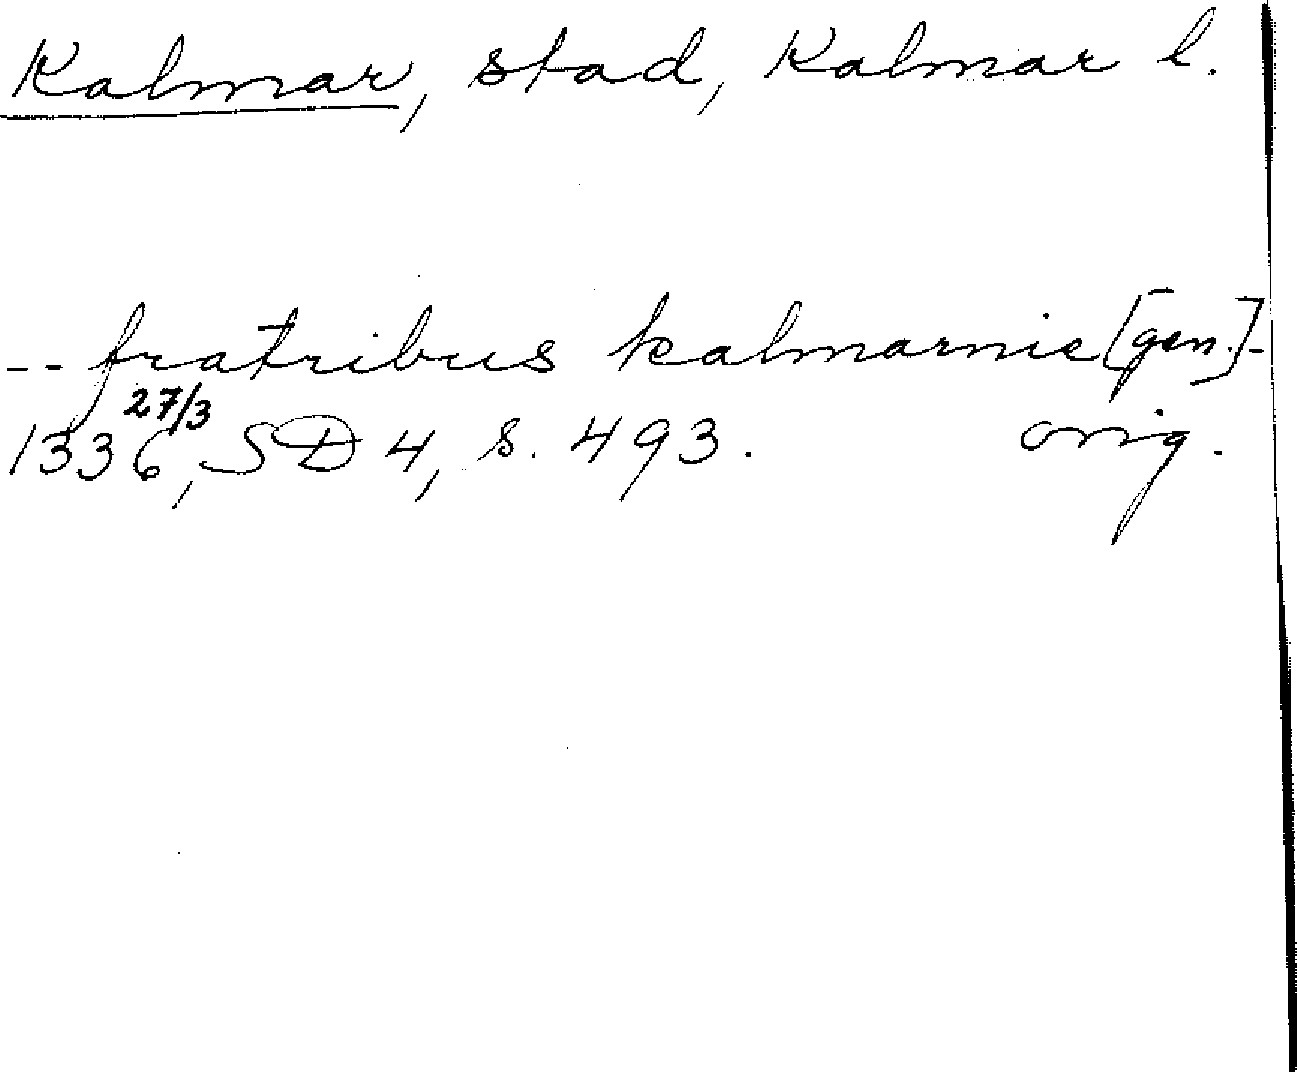 Kalmar, stad, Kalmar l.
-- fratribus kalmarnie [gen.]-
27/3
1336, SD 4, s. 493. orig.